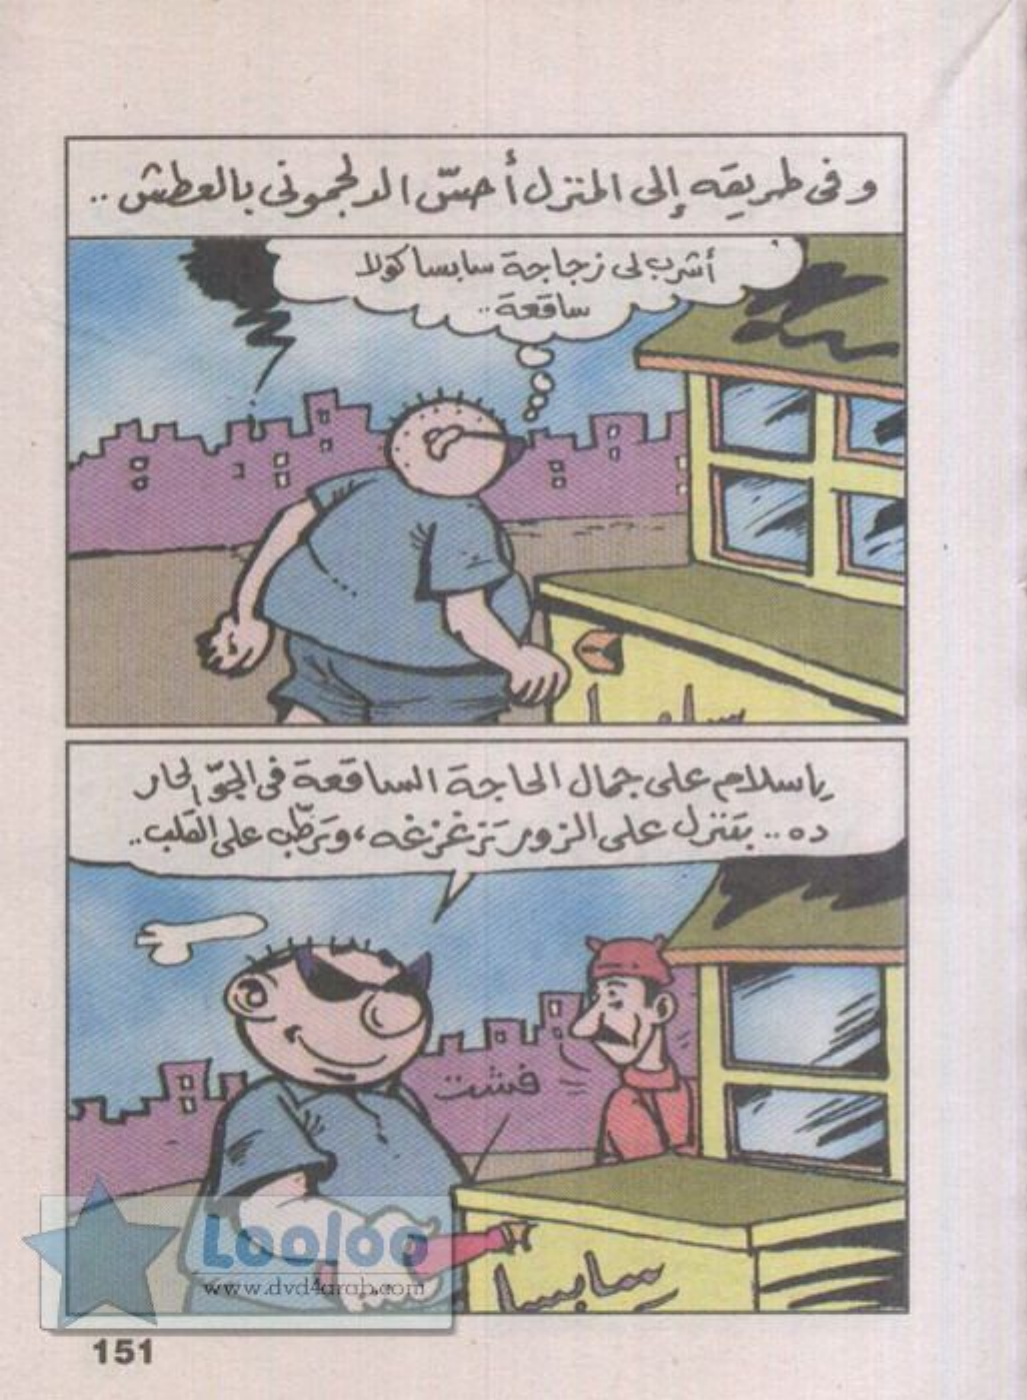 وفى طريقه إلى المنزل أحسّ الدلجمونى بالعطش ..
أشرب لى زجاجة سابسا كولا
ساقعة ..
ياسلام على جمال الحاجة الساقعة فى الجوّ الحار
ده .. بتنزل على الزور تزغزغه ، وترطّب على القلب ..
فشت
سابسا
Looloo
www.dvd4arab.com
151